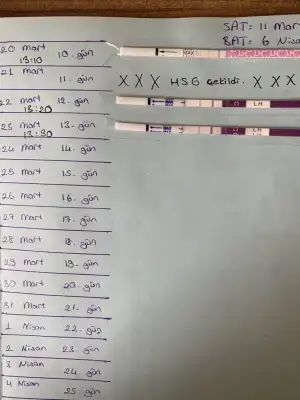 SAT: 11 Mar
BAT: 6 Nisa
20 mart 10. gün
13:10
MAX
21 mart 11. gün
X X X HSG Çekildi. X X X
22 mart 12. gün
13:20
LH
23 mart 13. gün
13:30
LH
24 mart 14. gün
25 mart 15. gün
26 mart 16. gün
27 mart 17. gün
28 mart 18. gün
29 mart 19. gün
30 mart 20. gün
31 mart 21. gün
1 Nisan 22. gün
2 Nisan 23. gün
3 Nisan 24. gün
4 Nisan 25. gün